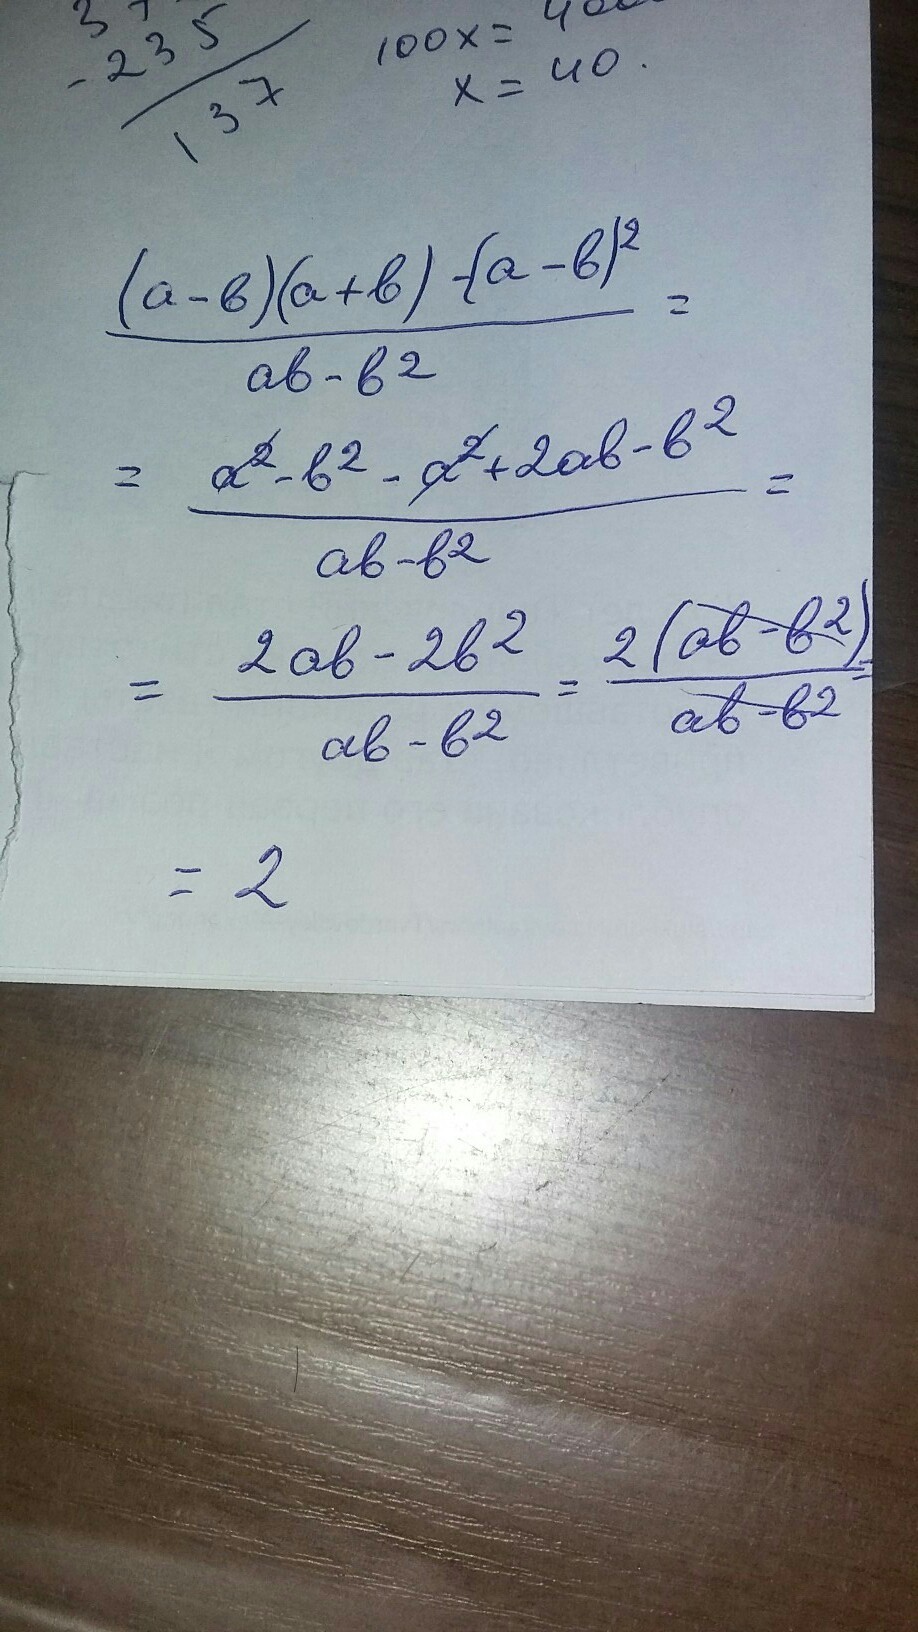 - 235
137
100x =
x = 40.
(a-b)(a+b) -(a-b)² =
ab-b²
= a²-b²-a²+2ab-b² =
ab-b²
= 2ab-2b² = 2(ab-b²) =
ab-b² ab-b²
= 2